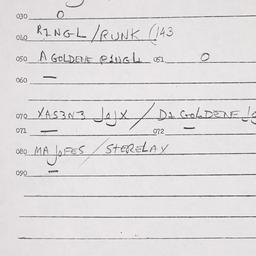 030 O
040 RINGL / RUNK (143
050 A GOLDENE RINGL 051 O
060
070 YAS3N3 JOJX / DI GOLDENE
071 072
080 MA JOFES / STERELAY
090